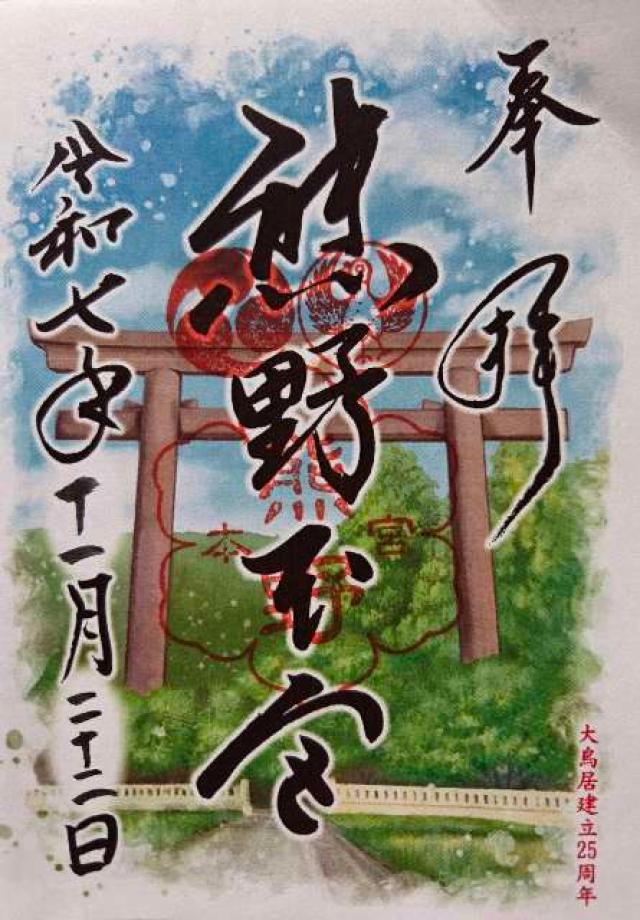 奉拝
熊野本宮
熊野
本宮
令和七年十一月二十二日
大鳥居建立25周年